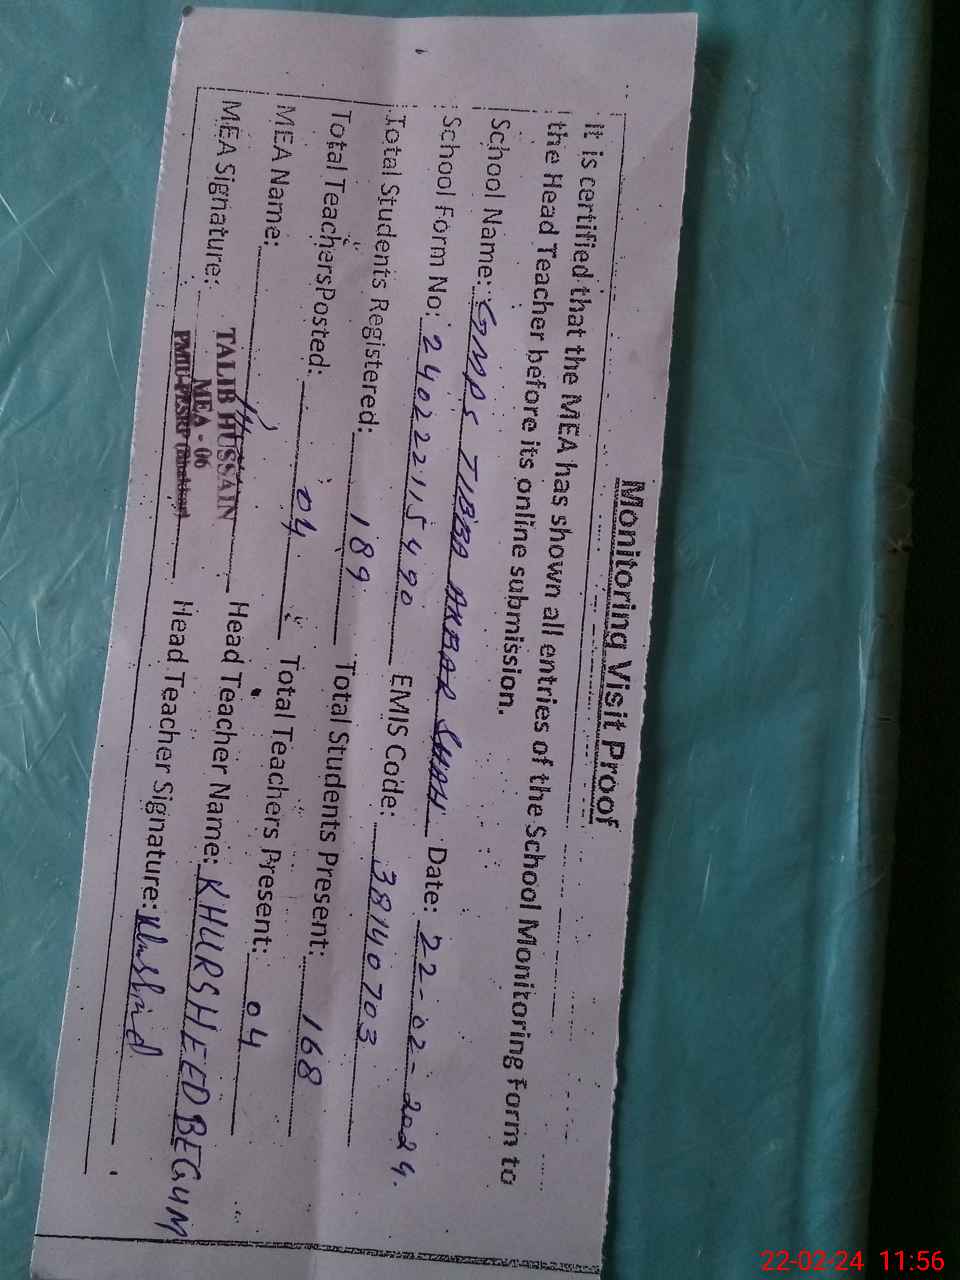 Monitoring Visit Proof
It is certified that the MEA has shown all entries of the School Monitoring Form to
the Head Teacher before its online submission.
School Name: GMPS TIBBA AKBAR SHAH Date: 22-02-2024.
School Form No: 24022115490 EMIS Code: 38140703
Total Students Registered: 189 Total Students Present: 168
Total TeachersPosted: 04 Total Teachers Present: 04
MEA Name: TALIB HUSSAIN Head Teacher Name: KHURSHEED BEGUM
MEA - 06
MEA Signature: Head Teacher Signature: Khurshid
22-02-24 11:56